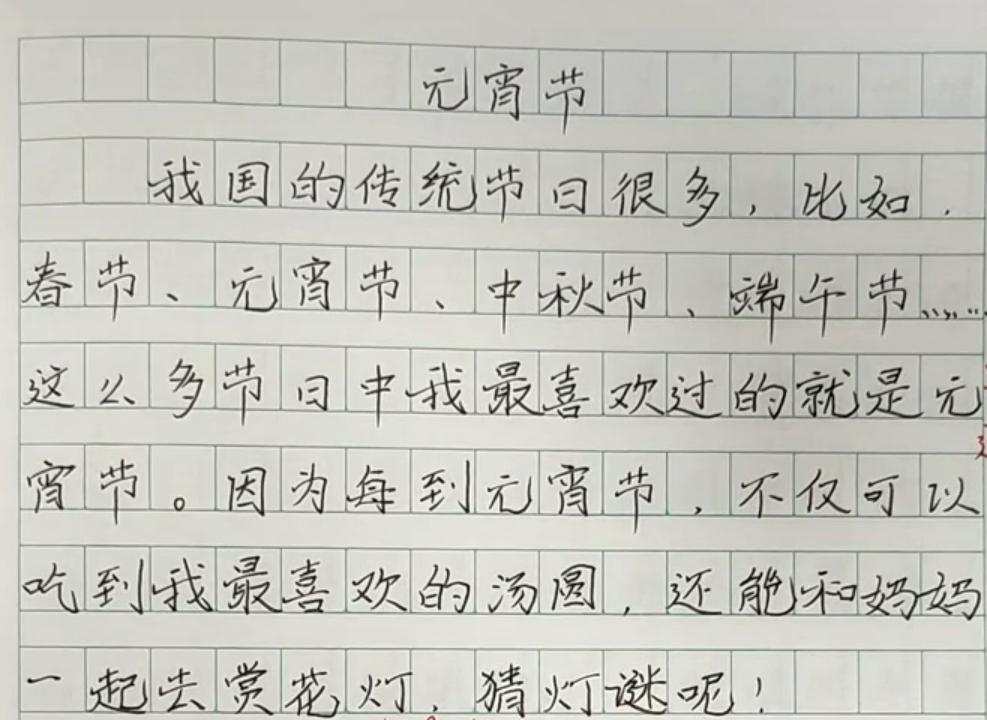 元宵节
我国的传统节日很多，比如，
春节、元宵节、中秋节、端午节……
这么多节日中我最喜欢过的就是元
宵节。因为每到元宵节，不仅可以
吃到我最喜欢的汤圆，还能和妈妈
一起去赏花灯，猜灯谜呢！